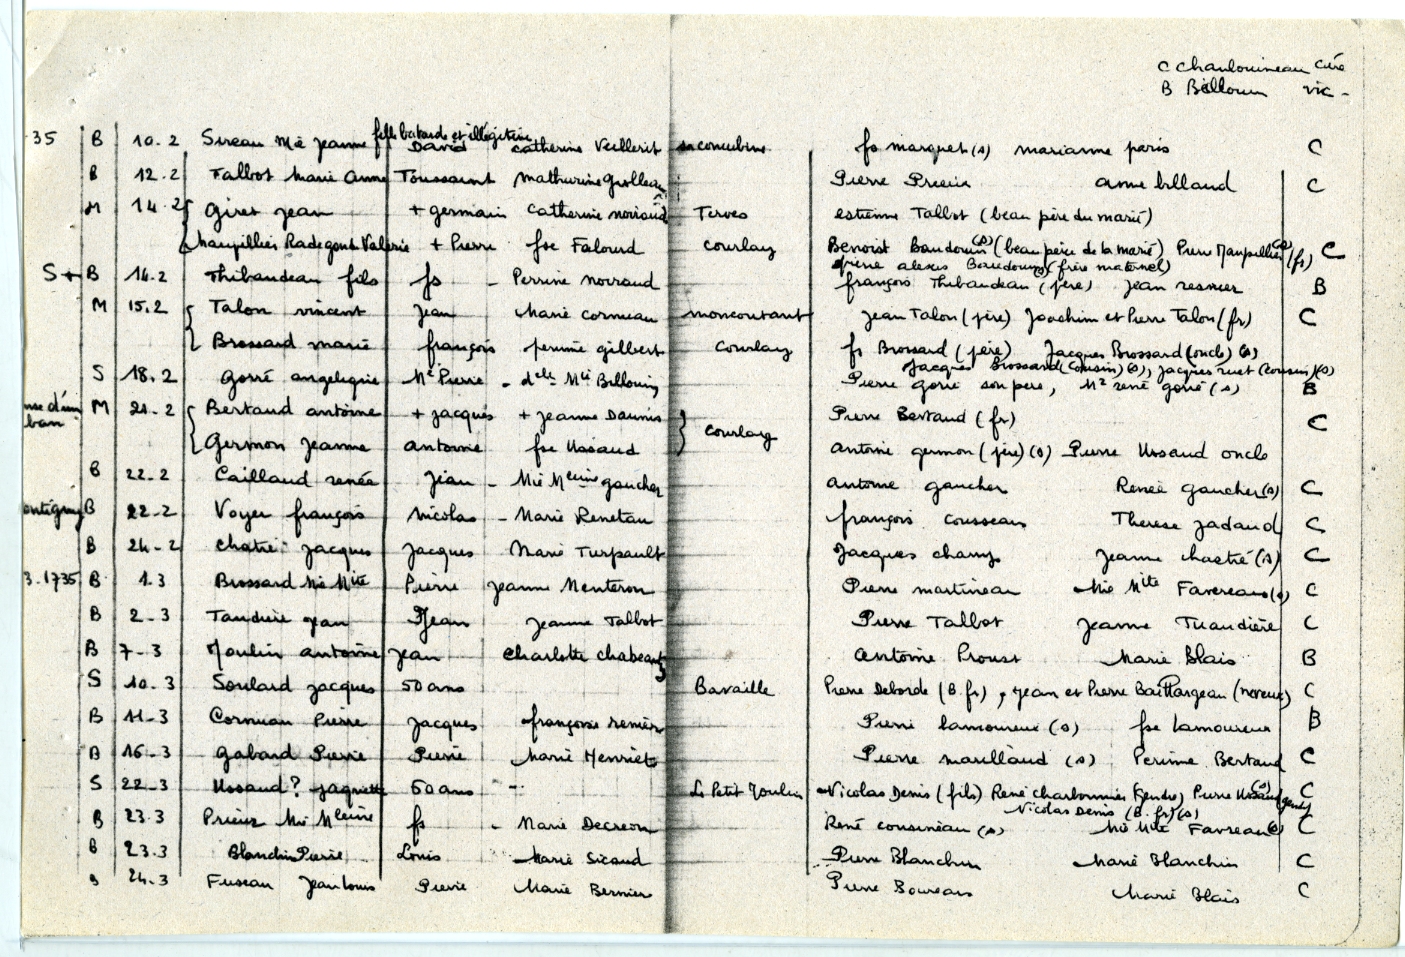 C Charlouineau Curé
B Billouin vic -
35 B 10.2 Sireau Mie Jeanne fille batarde et illégitime David Catherine Veillerit sa concubine fs marquet (s) marianne paris C
B 12.2 Talbot Marie Anne Toussaint mathurine grolleau Pierre Preein anne billaud C
M 14.2 { Giret Jean + germain Catherine noiraud Terves estienne Talbot (beau père du marié)
{ Maupillier Radegont Valérie + Pierre fse Falourd Courlay Benoist Baudouin (s) (beau père de la marié) Pierre Maupillier (s) (fr) C
Pierre alexis Baudouin (frère maternel)
S + B 14.2 Thibaudeau fils fs - Perrine noiraud françois Thibaudeau (père) Jean resnier B
M 15.2 { Talon vincent Jean Marie cormeau moncoutant Jean Talon (père) Joachim et Pierre Talon (fr) C
{ Brossard marie françois perrine gilbert Courlay fs Brossard (père) Jacques Brossard (oncle) (s)
Jacques Brossard (cousin) (s), Jacques ruet (cousin) (s)
S 18.2 Gorré angelique Me Pierre - delle Mie Billouin Pierre gorré son père, Me rené gorré (s) B
M 21-2 { Bertaud antoine + Jacques + Jeanne Daunis } Courlay Pierre Bertaud (fr) C
ban
{ Germon Jeanne antoine fse Ussaud antoine germon (père) (s) Pierre Ussaud oncle
B 22.2 Caillaud renée Jean - Mie Mleine gaucher antoine gaucher Renée gaucher (s) C
B 22-2 Voyer françois Nicolas - Marie Renetau françois cousseau Therese Jadaud C
B 24-2 Chatré Jacques Jacques Marie Turpault Jacques champ Jeanne chastré (s) C
3.1735 B 1.3 Brossard Mie Mite Pierre Jeanne Menteron Pierre martineau Mie Mite Favereau (s) C
B 2-3 Taudiere Jean Jean Jeanne Talbot Pierre Talbot Jeanne Tuaudière C
B 7-3 Moulin antoine Jean Charlotte chabeauty antoine Proust Marie Blais B
S 10.3 Soulard Jacques 50 ans Bavaille Pierre Deborde (B.fr), Jean et Pierre Baillargeau (neveux) C
B 11-3 Cormeau Pierre Jacques françoise remière Pierre lamoureux (s) fse lamoureux B
B 16-3 Gabard Pierre Pierre Marie Henriet Pierre maillaud (s) Perrine Bertaud C
S 22-3 Ussaud? Jaquette 60 ans - Le Petit Moulin Nicolas Denis (fils) René Charbonnier gendre, Pierre Ussaud (s) C
Nicolas Denis (B.fr) (s)
B 23.3 Prieur Mie Mleine fs - Marie Decreon René cousineau (s) Mie Mite Favreau (s) C
B 23.3 Blanchin Pierre Louis Marie Sicaud Pierre Blanchin Marie Blanchin C
B 24.3 Fuseau Jean Louis Pierre Marie Bernier Pierre Boureau Marie Blais C